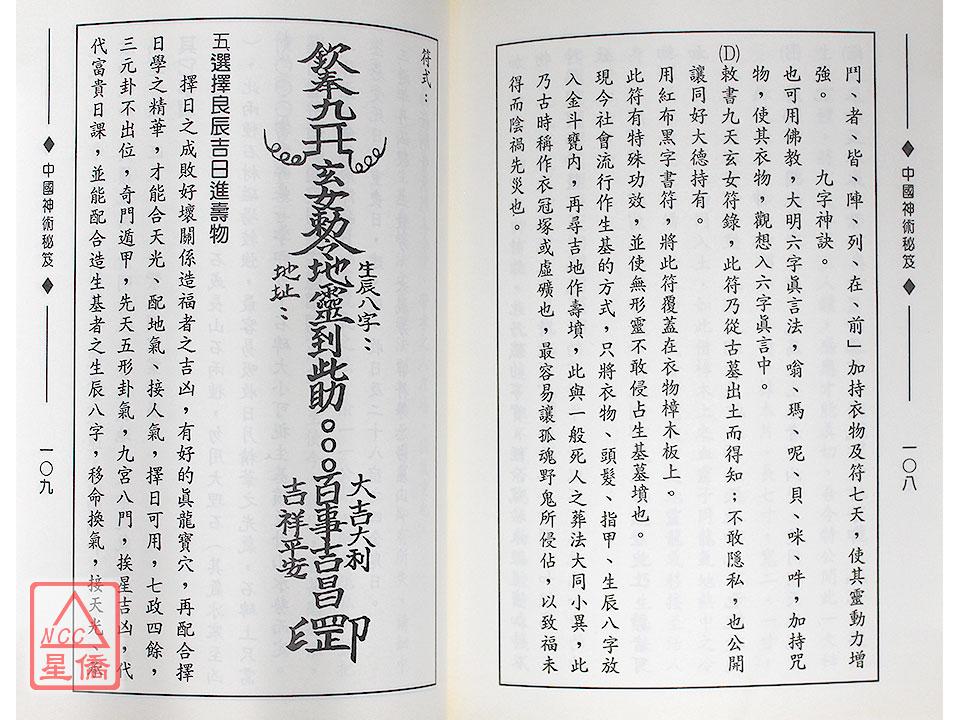 中國神術秘笈
一〇八
鬥、者、皆、陣、列、在、前」加持衣物及符七天，使其靈動力增
強。　九字神訣。
也可用佛教，大明六字眞言法，嗡、瑪、呢、貝、咪、吽，加持咒
物，使其衣物，觀想入六字眞言中。
(D)敕書九天玄女符錄，此符乃從古墓出土而得知；不敢隱私，也公開
讓同好大德持有。
用紅布黑字書符，將此符覆蓋在衣物樟木板上。
此符有特殊功效，並使無形靈不敢侵占生基墓墳也。
現今社會流行作生基的方式，只將衣物、頭髮、指甲、生辰八字放
入金斗甕內，再尋吉地作壽墳，此與一般死人之葬法大同小異，此
乃古時稱作衣冠塚或虛壙也，最容易讓孤魂野鬼所侵佔，以致福未
得而陰禍先災也。
符式：
生辰八字：
大吉大利
欽奉九天玄女勅令地靈到此助。。。百事吉昌
地址：
吉祥平安
五選擇良辰吉日進壽物
擇日之成敗好壞關係造福者之吉凶，有好的眞龍寶穴，再配合擇
日學之精華，才能合天光、配地氣、接人氣，擇日可用，七政四餘，
三元卦不出位，奇門遁甲，先天五形卦氣，九宮八門，挨星吉凶，代
代富貴日課，並能配合造生基者之生辰八字，移命換氣，接天光、
中國神術秘笈
一〇九
NCC
星僑